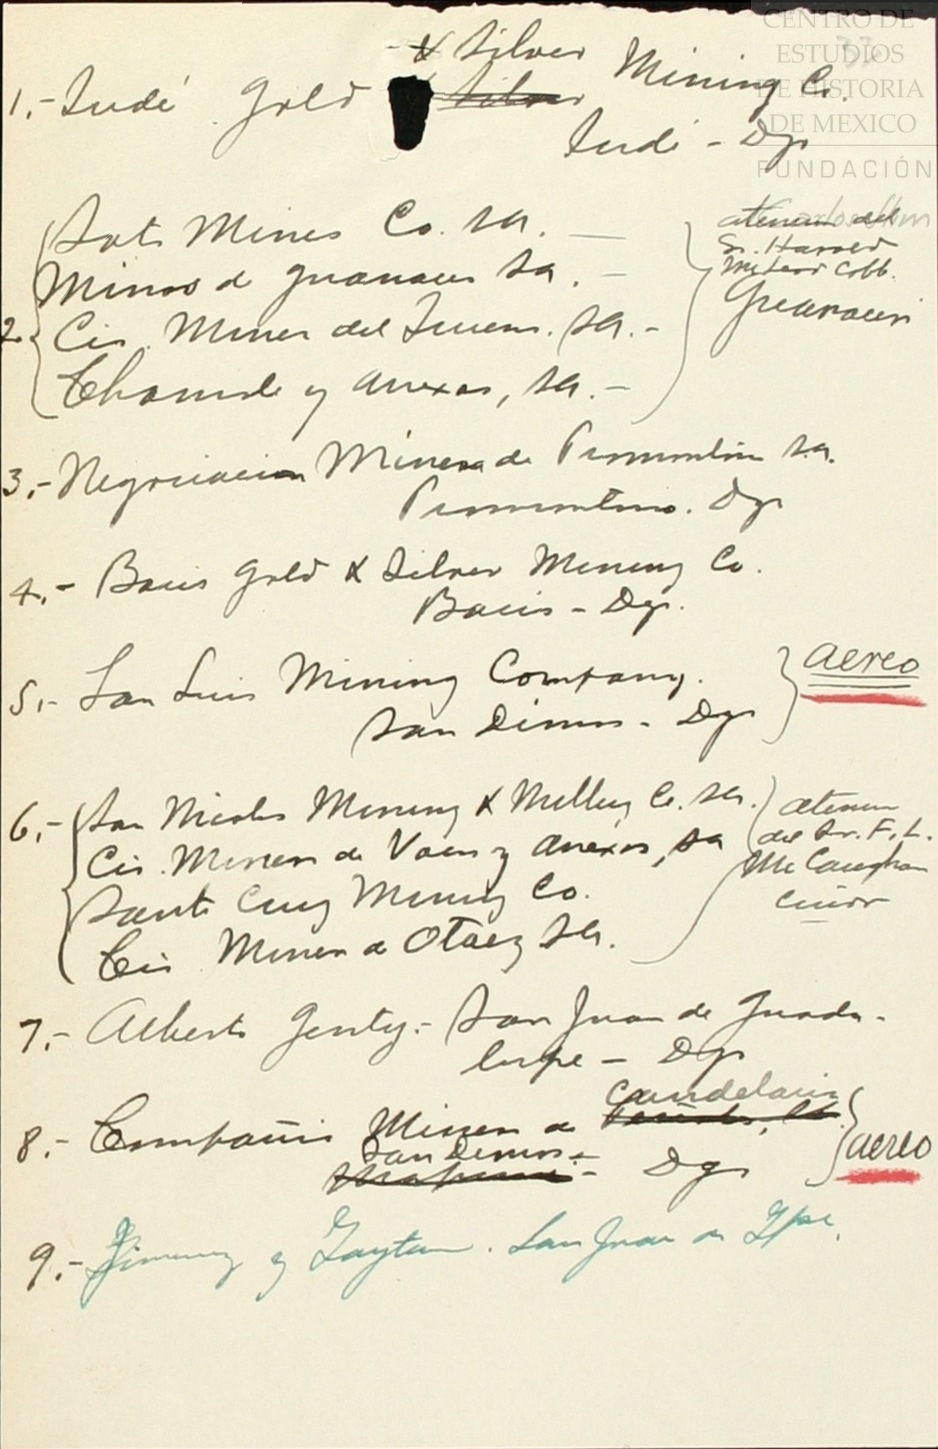 CENTRO DE
ESTUDIOS
DE HISTORIA
DE MEXICO
FUNDACIÓN
33
1.- Indé Gold & Silver Mining Co.
Indé - Dgo
Soto Mines Co. SA.
Minas de Guanacevi SA.
2. Cia. Minera del SA.
y Anexas, SA.
atencion del
Sr. Harold
Cobb.
Guanacevi
3.- Negociacion Minera de Promontorio SA.
Promontorio. Dgo
4.- Bacis Gold & Silver Mining Co.
Bacis - Dgo.
5.- San Luis Mining Company.
San Dimas - Dgo
aereo
6.- San Nicolas Mining & Milling Co. SA.
Cia. Minera de Vacas y Anexas, SA
Santa Cruz Mining Co.
Cia Minera de Otaez SA.
atencion
del Sr. F. L.
McCaughan
7.- Alberto Genty.- San Juan de Guada-
lupe - Dgo
8.- Compañia Minera de Candelaria
San Dimas - Dgo
aereo
9.- Jimenez y Gaytan. San Juan de Gpe.